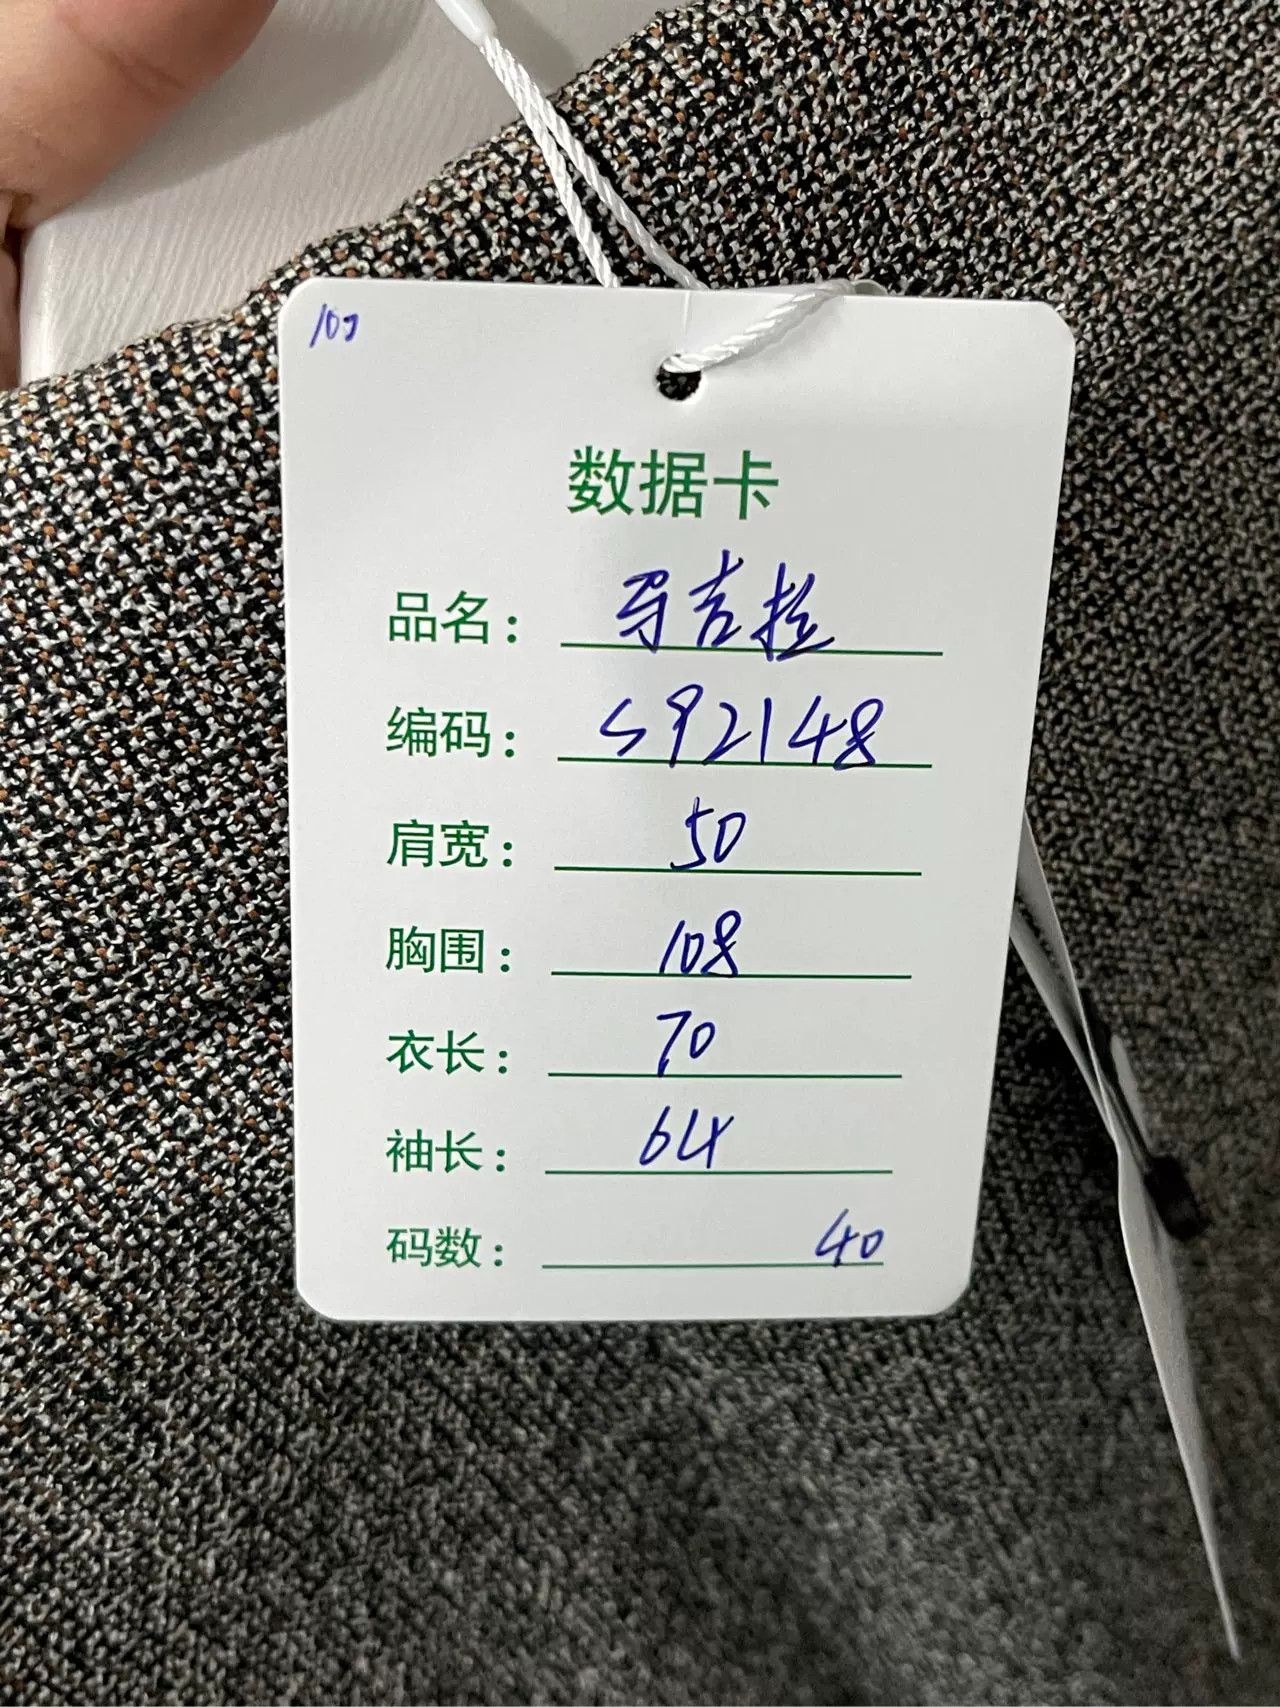 数据卡
品名： 马吉拉
编码： S92148
肩宽： 50
胸围： 108
衣长： 70
袖长： 64
码数： 40